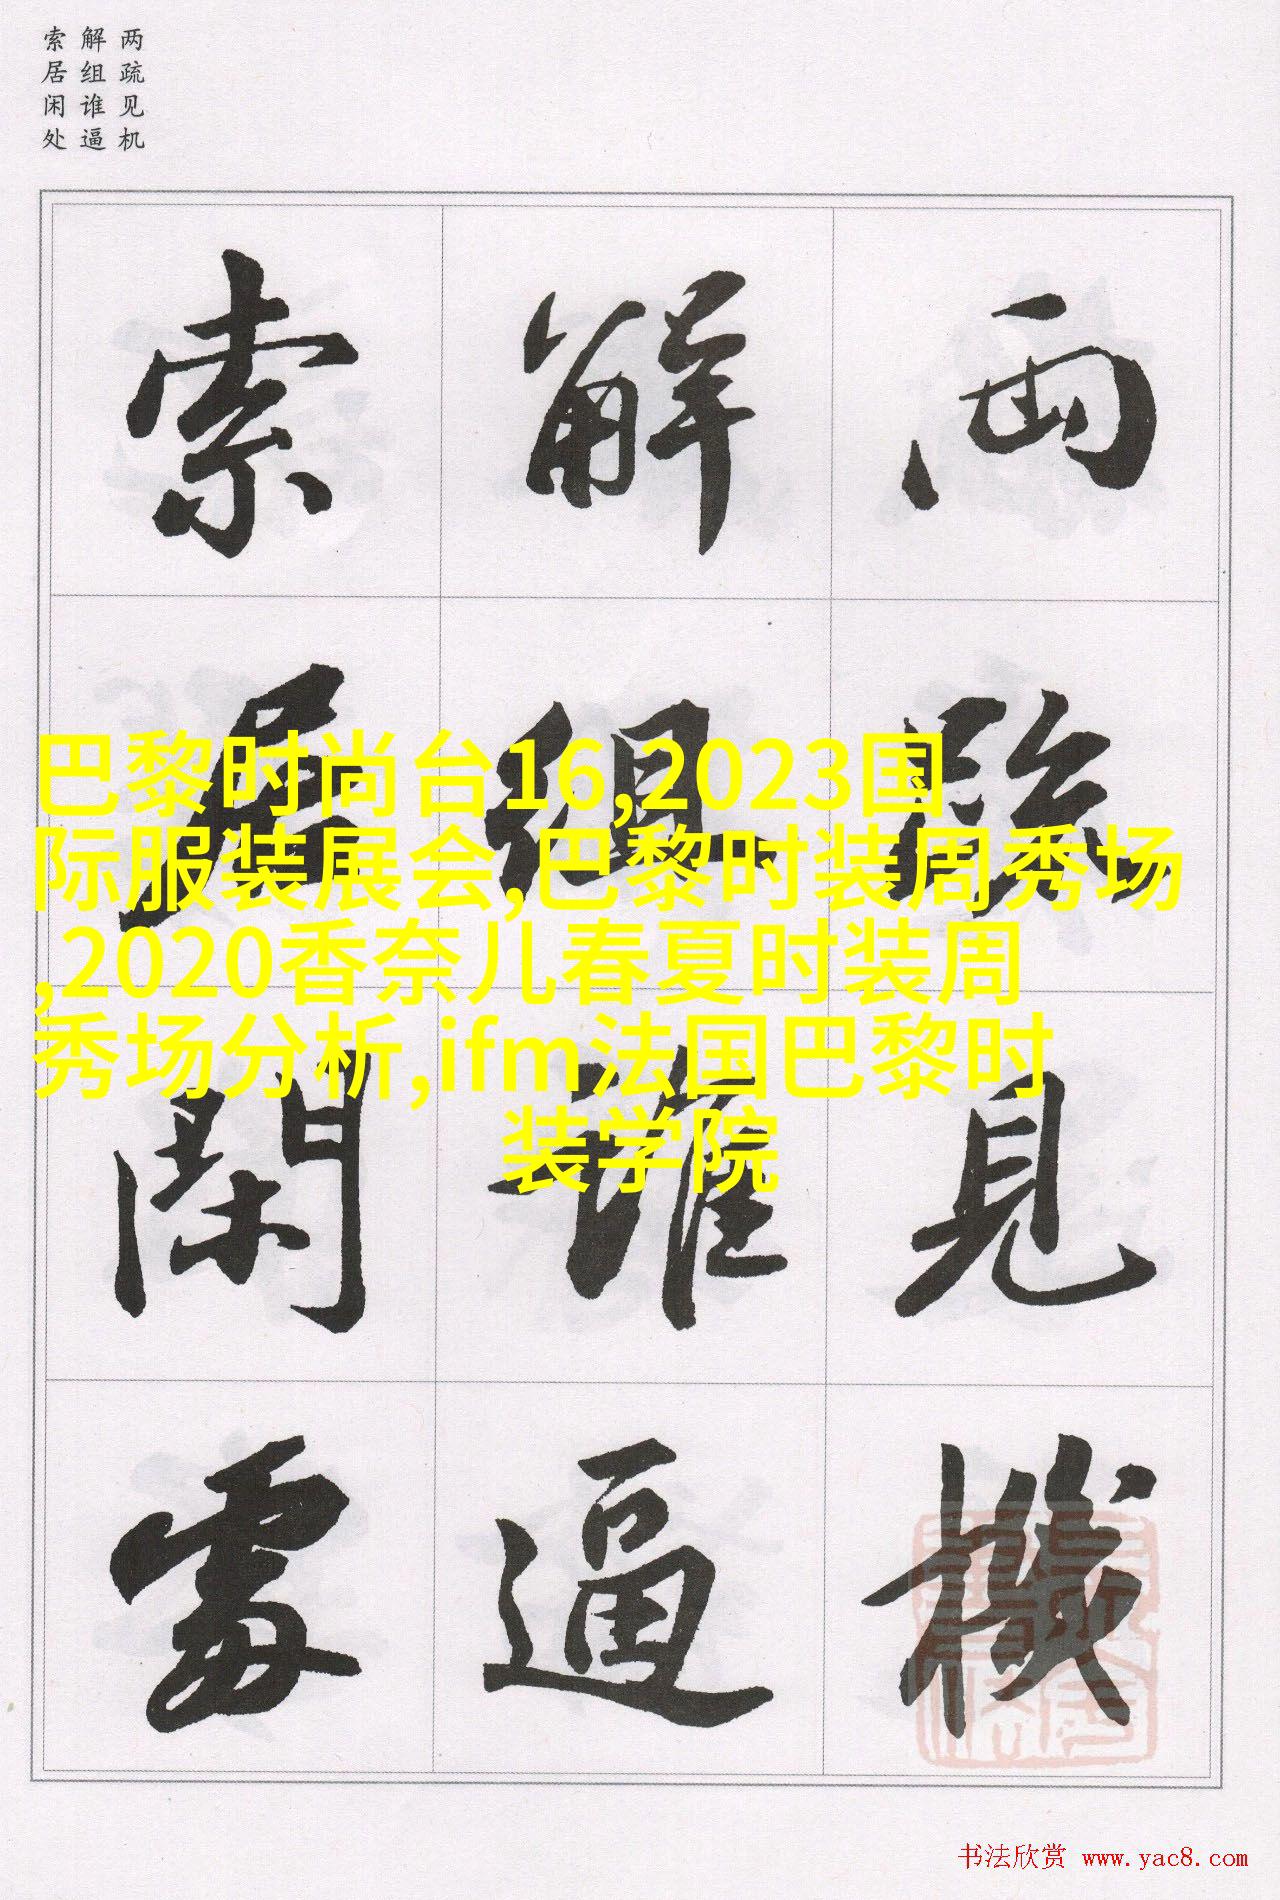 两疏见机
解组谁逼
索居闲处
两疏見機
解組誰逼
索居閑處
巴黎时尚台16,2023国
际服装展会,巴黎时装周秀场
,2020香奈儿春夏时装周
秀场分析,ifm法国巴黎时
装学院
书法欣赏 www.yac8.com